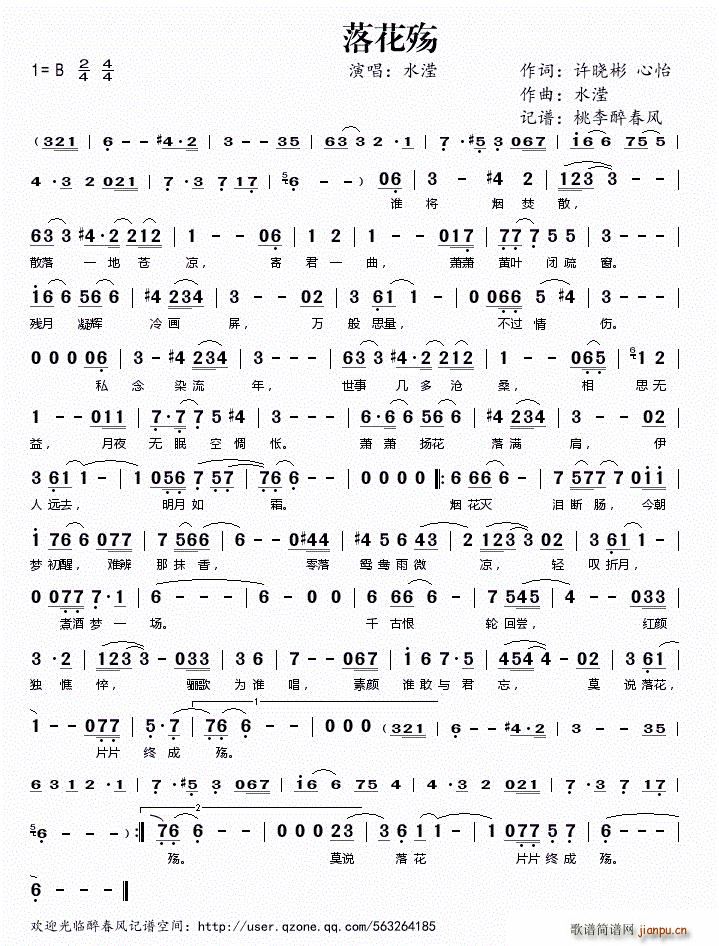 落花殇
1=B 2/4 4/4 演唱：水滢 作词：许晓彬 心怡
作曲：水滢
记谱：桃李醉春风
(321 | 6 - - | #4·2 | 3 - - 35 | 633 32·1 | 7·#5 3 067 | i66 755 |
4·3 2 021 | 7·3 7 17 | 6 - - ) 06 | 3 - #4 2 | 123 3 - - |
谁 将 烟 焚 散，
633 #4·2 212 | 1 - - 06 | 1 2 - | 1 - - 017 | 77 7 5 5 | 3 - - - |
散落 一 地 苍 凉， 寄 君 一 曲， 萧萧 黄叶 闭 疏 窗。
i66 566 | #4 234 | 3 - - 02 | 3 61 1 - | 0 066 5 #4 | 3 - - - |
残月 凝辉 冷 画 屏， 万 般 思量， 不过 情 伤。
0 0 0 06 | 3 - #4 234 | 3 - - - | 633 #4·2 212 | 1 - - 065 | 6 1 2 |
私 念 染 流 年， 世事 几 多 沧 桑， 相 思 无
1 - - 011 | 7·7 7 5 #4 | 3 - - - | 6·66 566 | #4 234 | 3 - - 02 |
益， 月夜 无 眠 空 惆 怅。 萧 萧 扬花 落 满 肩， 伊
3 61 1 - - | 1 056 7 57 | 766 - - | 0 0 0 0 |: 6 666 - | 7 577 7 0ii |
人 远去， 明月 如 霜。 烟 花 灭 泪 断 肠， 今朝
i 766 077 | 7 566 | 6 - - 0#44 | #4 5 6 43 | 2 123 3 02 | 3 61 1 - |
梦 初醒， 难辨 那 抹 香， 零落 鸳 鸯 雨 微 凉， 轻 叹 折月，
0 077 7·1 | 6 - - - | 6 - 0 0 | 6 66 6 - | 7 545 | 4 - - 033 |
煮酒 梦 一 场。 千 古 恨 轮 回 尝， 红颜
3·2 | 123 3 - 033 | 3 6 6 | 7 - - 067 | i i 7·5 | 454 4 - 02 | 3 61 |
独 憔 悴， 骊歌 为 谁 唱， 素颜 谁 敢 与 君 忘， 莫 说 落花，
1 - - 077 | 5·7 | 76 6 - - | 0 0 0 (321 | 6 - - | #4·2 | 3 - - 35 |
1
片片 终 成 殇。
6 3 1 2·1 | 7·#5 3 067 | i66 75 4 | 4·3 2 021 | 7·3 7 17 |
6 - - - ) :| 76 6 - - | 0 0 0 23 | 3 61 1 - | 1 077 5 7 | 6 - - - |
2
殇。 莫说 落 花 片片 终 成 殇。
6 - - ||
欢迎光临醉春风记谱空间：http://user.qzone.qq.com/563264185
歌谱简谱网
jianpu.cn